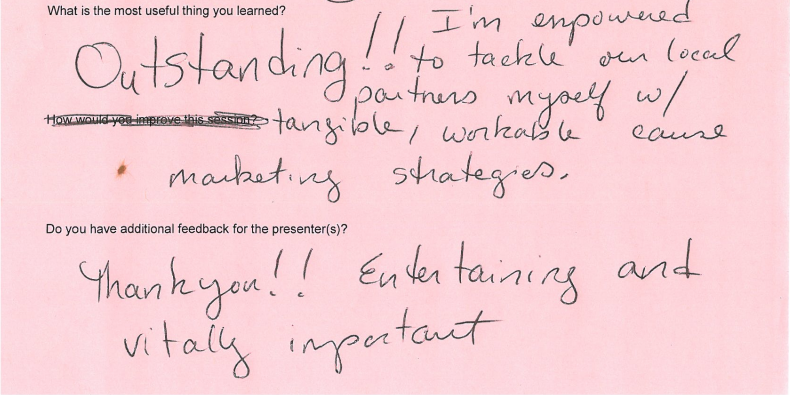 What is the most useful thing you learned?
Outstanding!! I'm empowered
to tackle our local
partners myself w/
How would you improve this session?
tangible, workable cause
marketing strategies.
Do you have additional feedback for the presenter(s)?
Thank you!! Entertaining and
vitally important